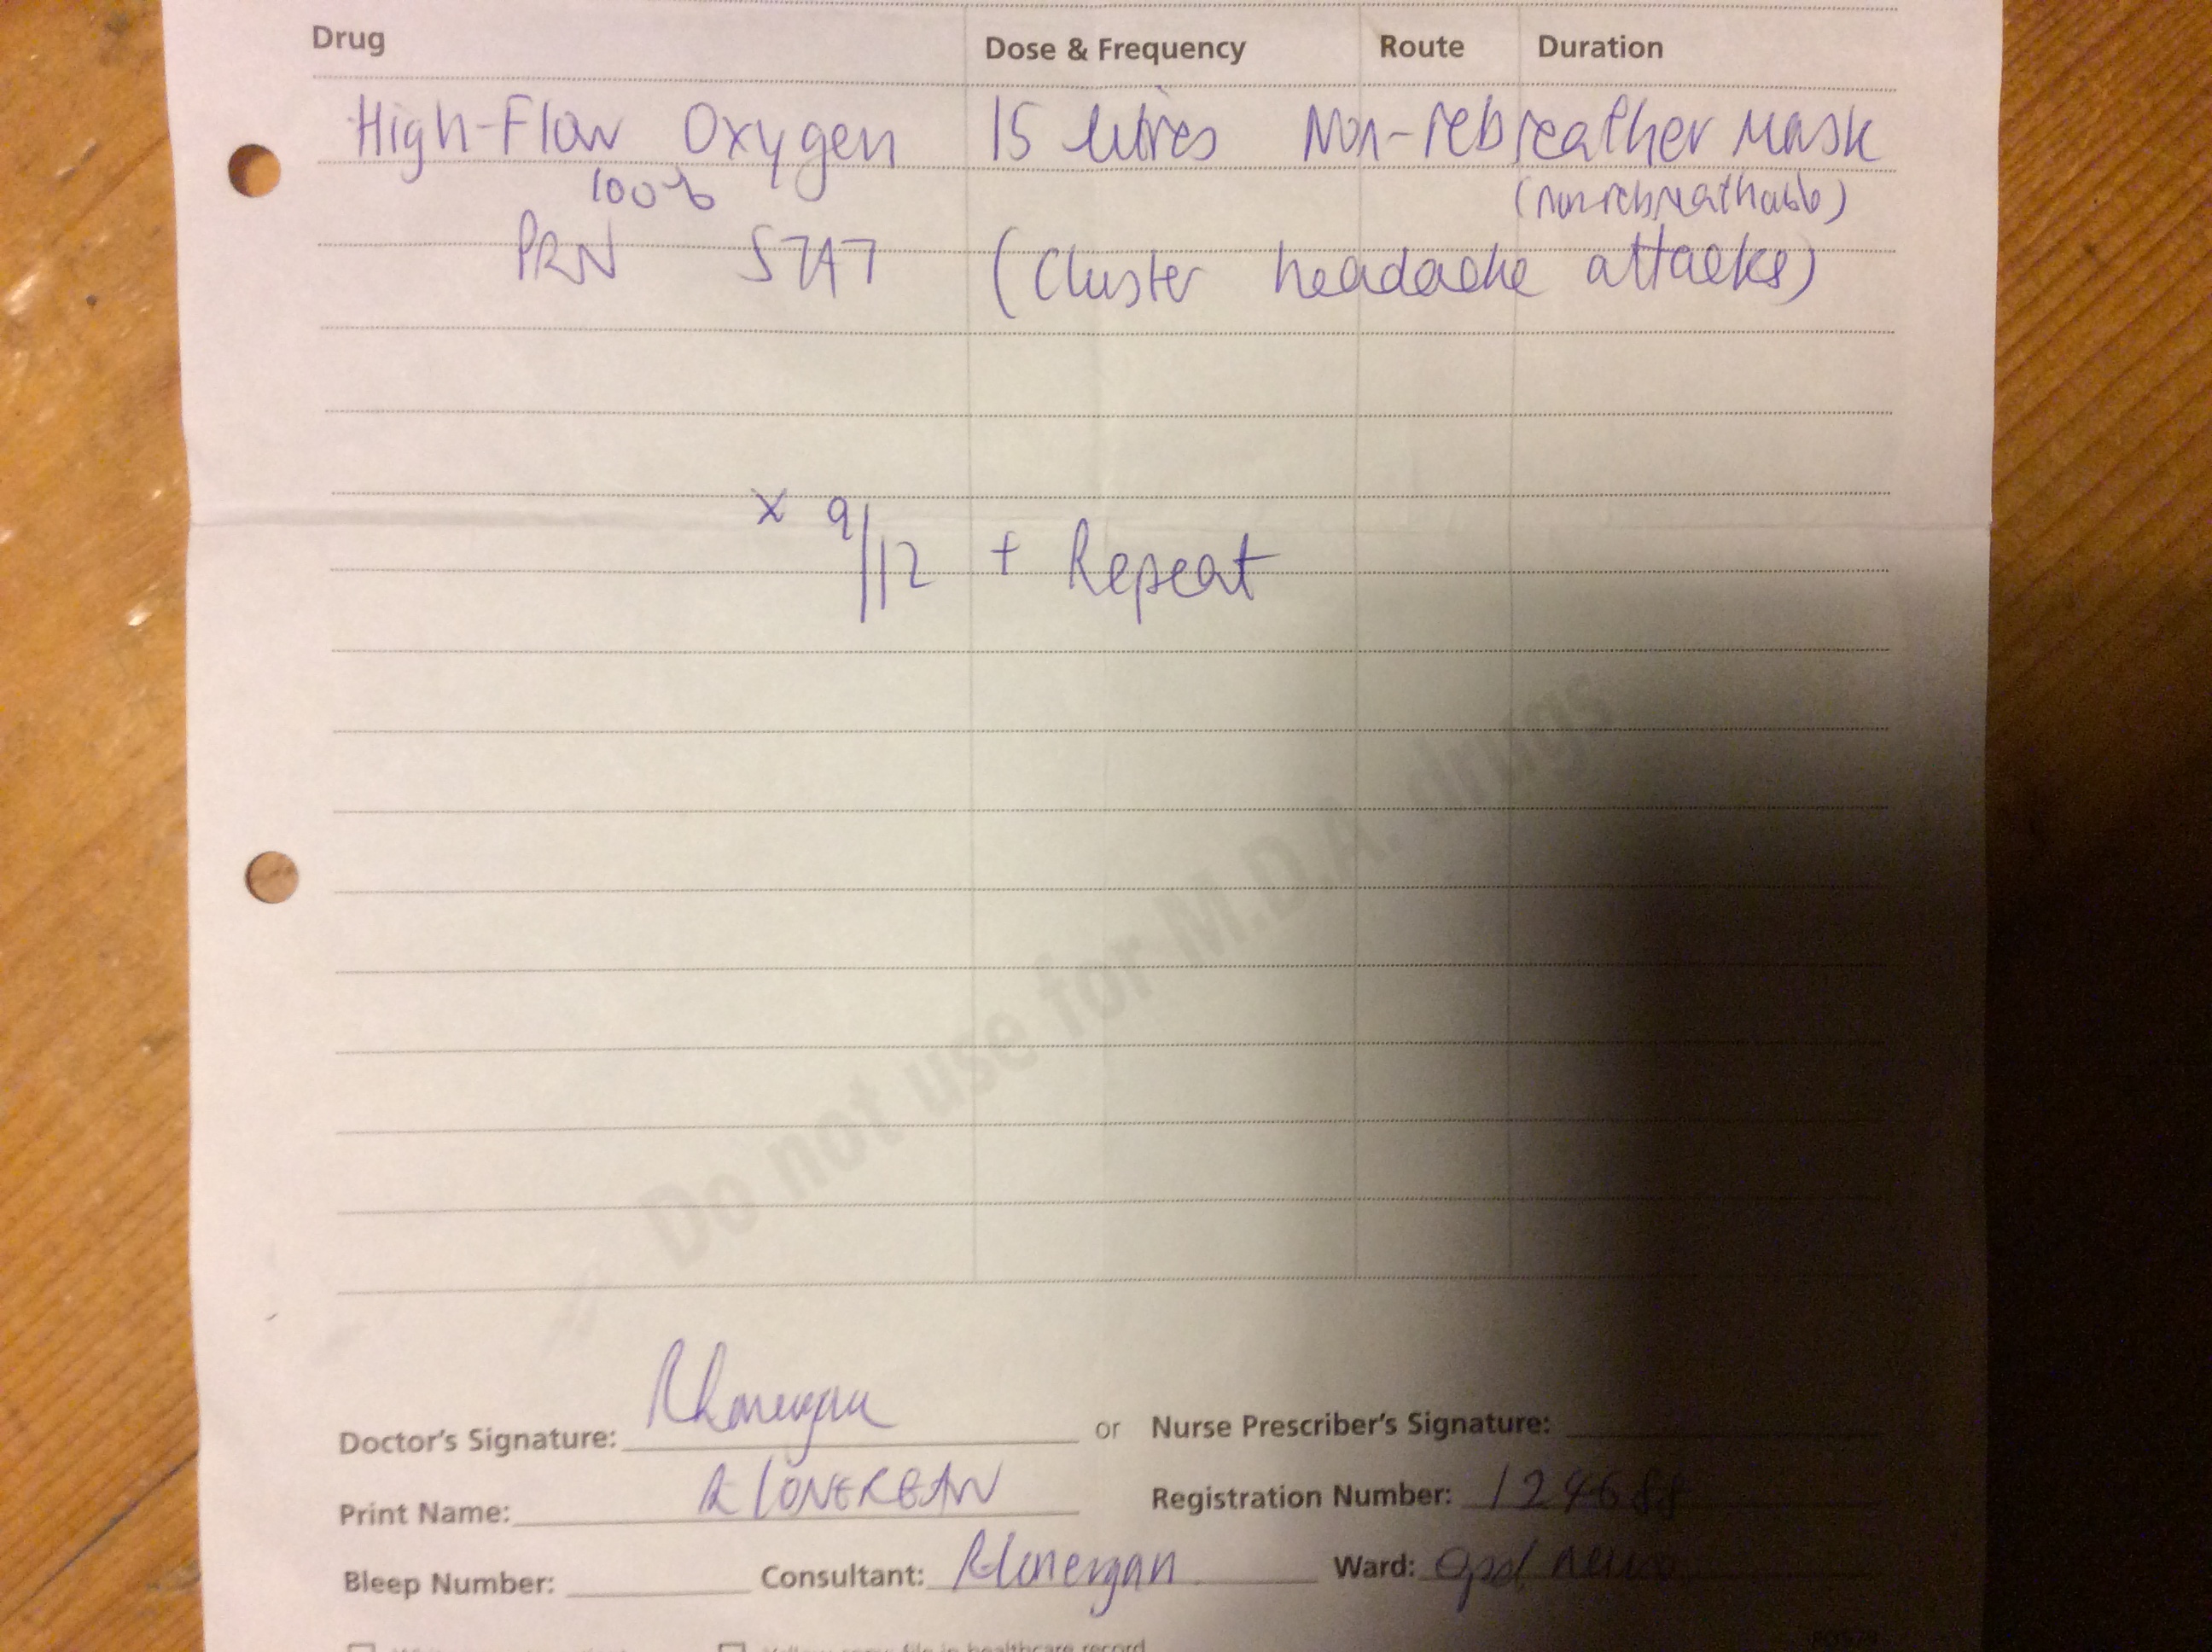 Drug Dose & Frequency Route Duration
High-Flow Oxygen 15 litres Non-rebreather mask
100% (non-rebreathable)
PRN STAT (Cluster headache attacks)
x 9/12 + Repeat
Do not use for M.D.A. drugs
Doctor's Signature: RLonergan or Nurse Prescriber's Signature:
Print Name: R LONERGAN Registration Number: 124688
Bleep Number: Consultant: RLonergan Ward: opd neuro
Yellow copy file in healthcare record